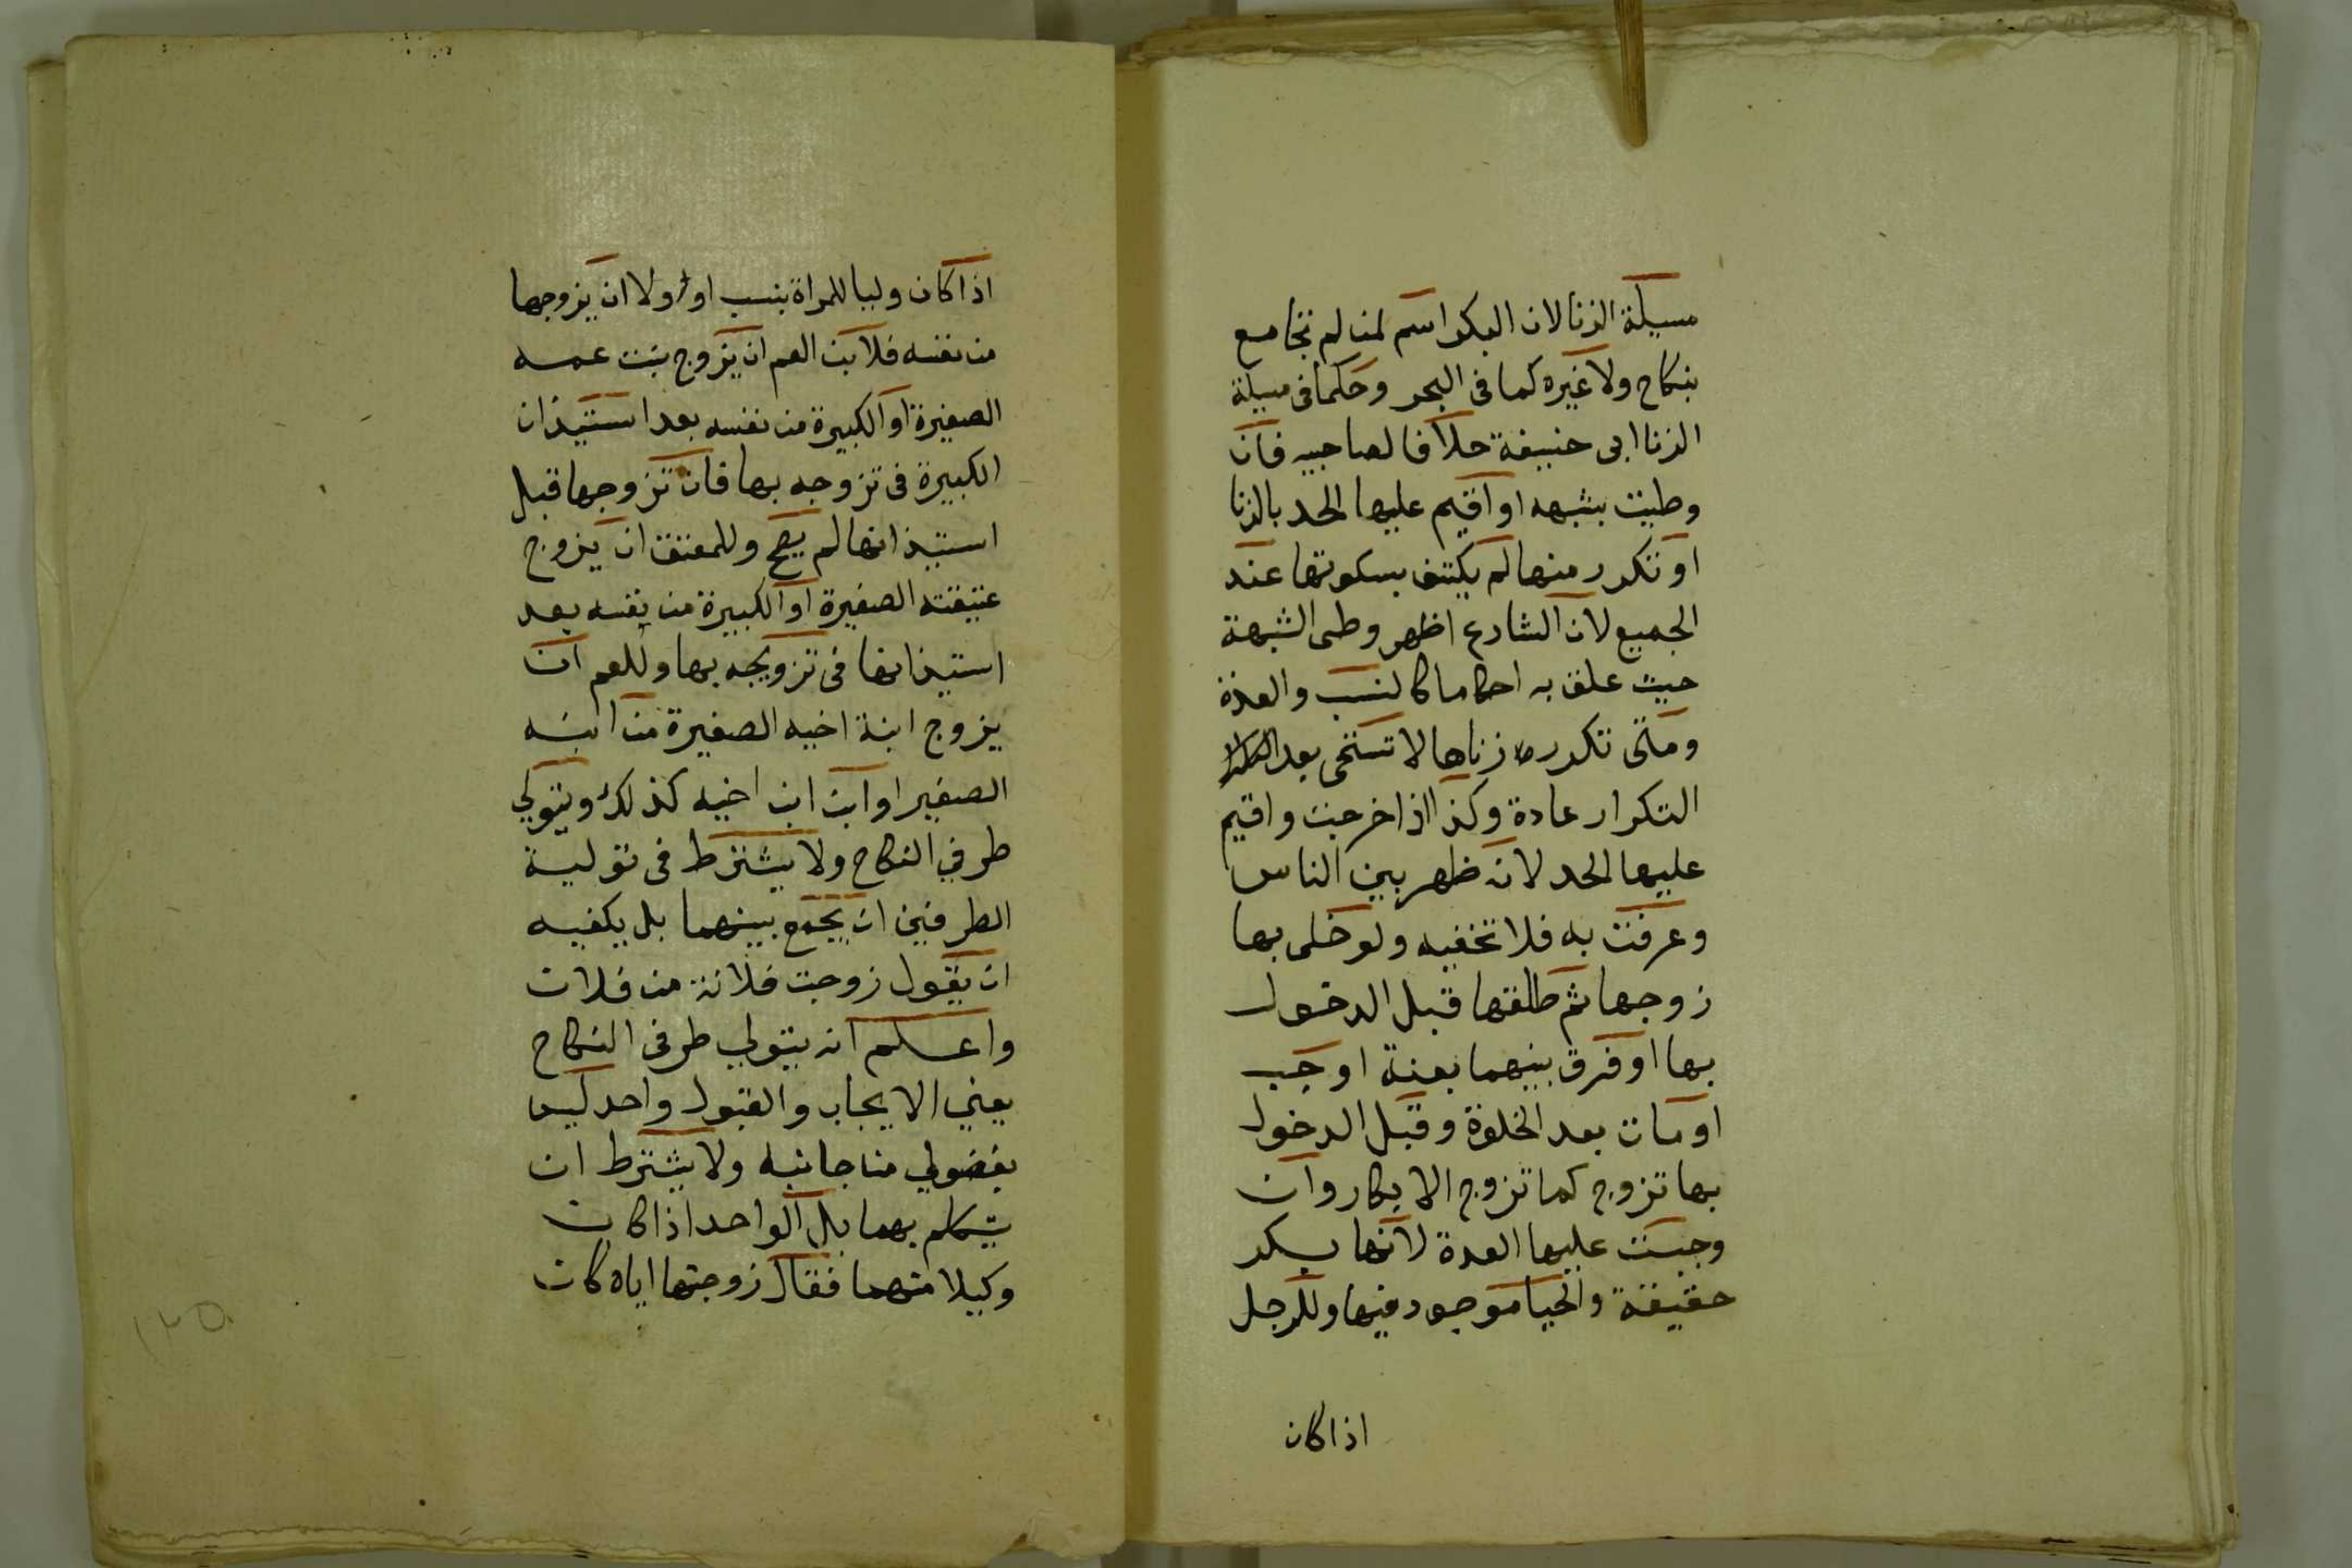 مسيلة الزنا لان البكر اسم لمن لم تجامع
بنكاح ولا غيره كما فى البحر وحكما فى مسيلة
الزنا ابى حنيفة خلافا لصاحبيه فان
وطيت بشبهه او اقيم عليها الحد بالزنا
او تكرر منها لم يكتف بسكوتها عند
الجميع لان الشارع اظهر وطى الشبهة
حيث علق به احكاما كالنسب والعدة
ومتى تكرر زناها لا تستحى بعد
التكرار عادة وكذا اذا خرجت واقيم
عليها الحد لانه ظهر بين الناس
وعرفت به فلا تخفيه ولو خلى بها
زوجها ثم طلقها قبل الدخول
بها او فرق بينهما بعنة او جب
او مات بعد الخلوة وقبل الدخول
بها تزوج كما تزوج الابكار وان
وجبت عليها العدة لانها بكر
حقيقة والحيا موجود فيها وللرجل
اذا كان
اذا كان وليا للمراة بنسب او ولا ان يزوجها
من نفسه فلابن العم ان يزوج بنت عمه
الصغيرة او الكبيرة من نفسه بعد استيذان
الكبيرة فى تزوجه بها فان تزوجها قبل
استيذانها لم يصح وللمعتق ان يزوج
عتيقته الصغيرة او الكبيرة من نفسه بعد
استيذانها فى تزويجه بها وللعم ان
يزوج ابنة اخيه الصغيرة من ابنه
الصغير او ابن ابن اخيه كذلك ويتولي
طرفي النكاح ولا يشترط فى تولية
الطرفين ان يجمع بينهما بل يكفيه
ان يقول زوجت فلانة من فلان
واعلم انه يتولي طرفى النكاح
يعني الايجاب والقبول واحد ليس
بفضولي من جانبه ولا يشترط ان
يتكلم بهما بل الواحد اذا كان
وكيلا منهما فقال زوجتها اياه كان